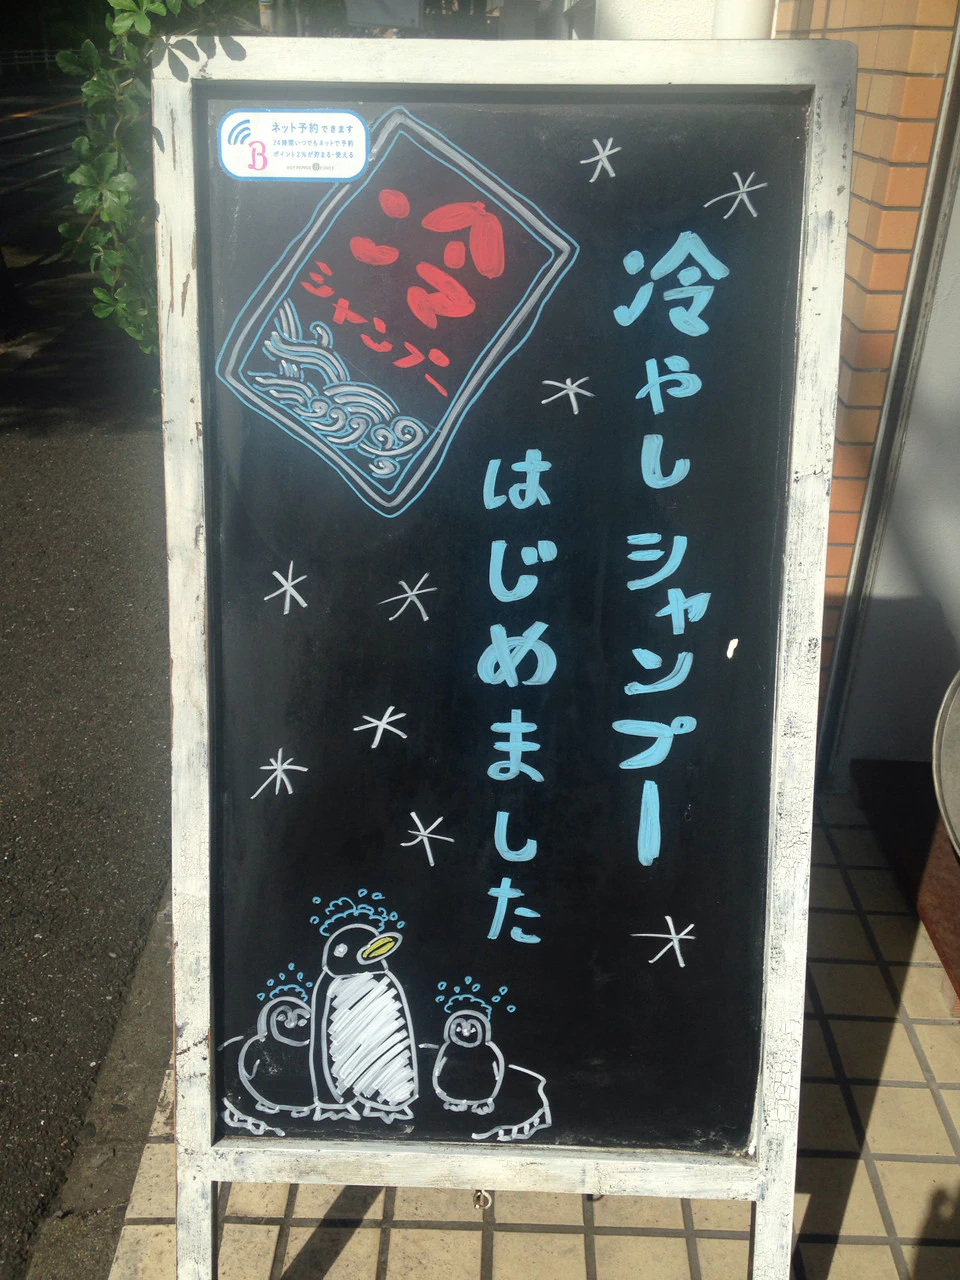 ネット予約できます
24時間いつでもネットで予約
ポイント2%が貯まる・使える
HOT PEPPER
冷
シャンプー
冷やしシャンプー
はじめました